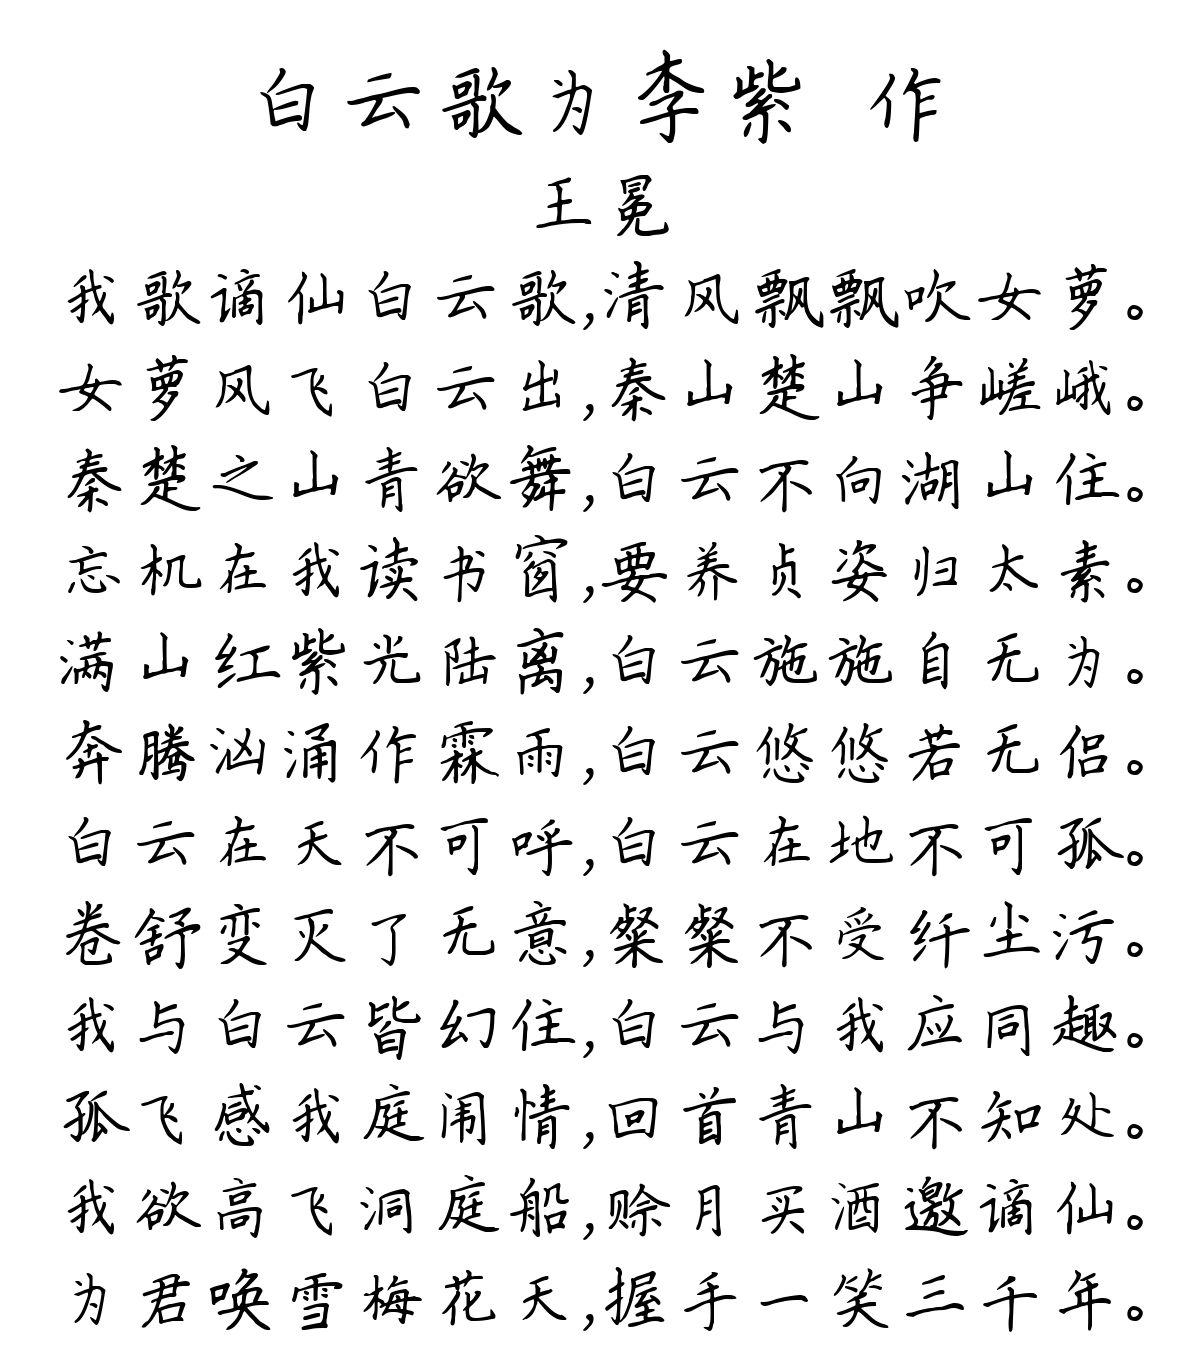 白云歌为李紫 作
王冕
我歌谪仙白云歌,清风飘飘吹女萝。
女萝风飞白云出,秦山楚山争嵯峨。
秦楚之山青欲舞,白云不向湖山住。
忘机在我读书窗,要养贞姿归太素。
满山红紫光陆离,白云施施自无为。
奔腾汹涌作霖雨,白云悠悠若无侣。
白云在天不可呼,白云在地不可孤。
卷舒变灭了无意,粲粲不受纤尘污。
我与白云皆幻住,白云与我应同趣。
孤飞感我庭闱情,回首青山不知处。
我欲高飞洞庭船,赊月买酒邀谪仙。
为君唤雪梅花天,握手一笑三千年。